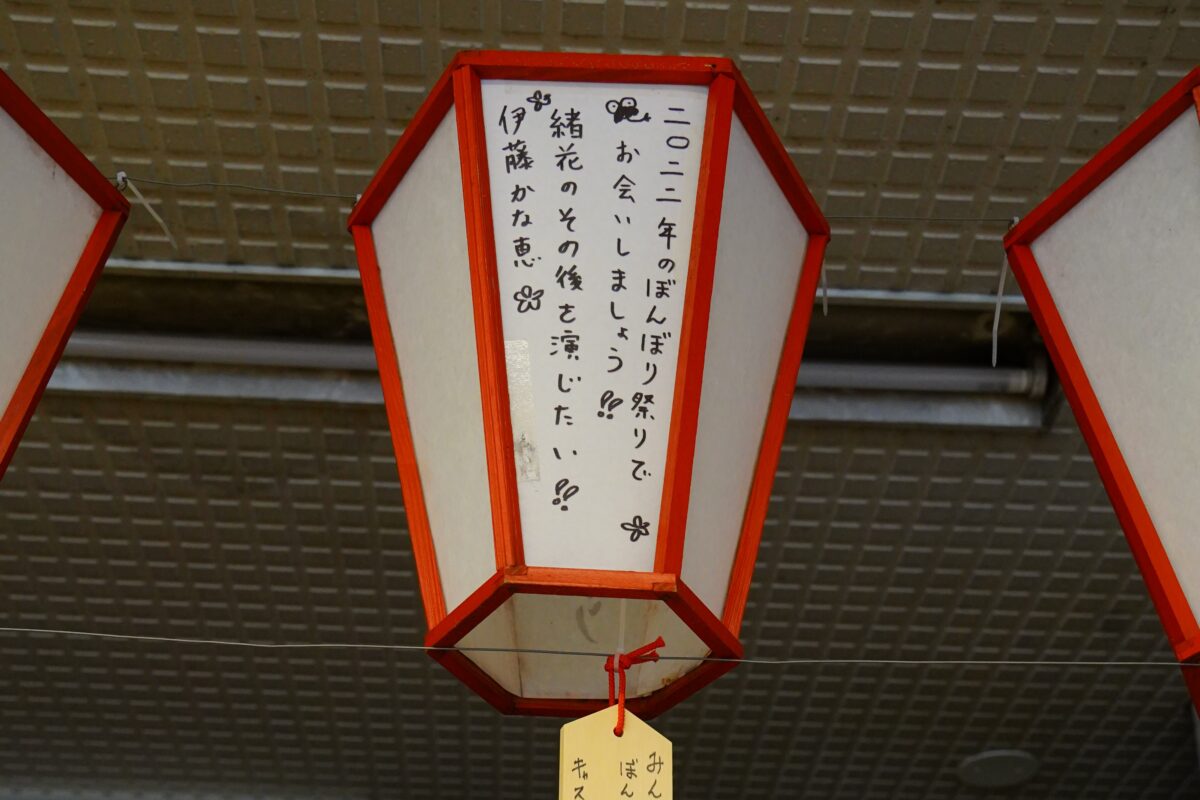 二〇二二年のぼんぼり祭りで
お会いしましょう!!
緒花のその後を演じたい!!
伊藤かな恵
みん
ぼん
キャス